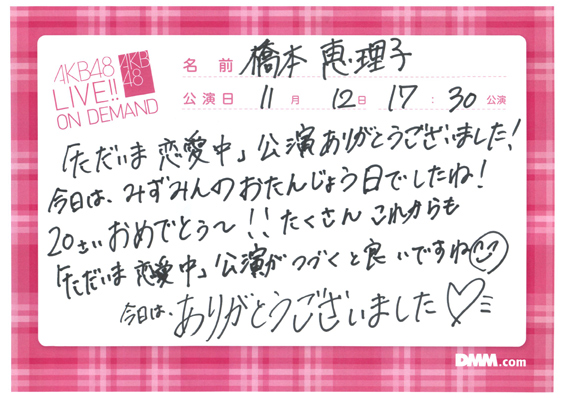 AKB48
LIVE!!
ON DEMAND
AKB
48
名前 橋本 恵理子
公演日 11月 12日 17:30公演
「ただいま 恋愛中」公演ありがとうございました!
今日は、みずみんのおたんじょう日でしたね!
20さいおめでとう〜!!たくさん これからも
「ただいま 恋愛中」公演が つづくと良いですね
今日は、ありがとうございました
DMM.com